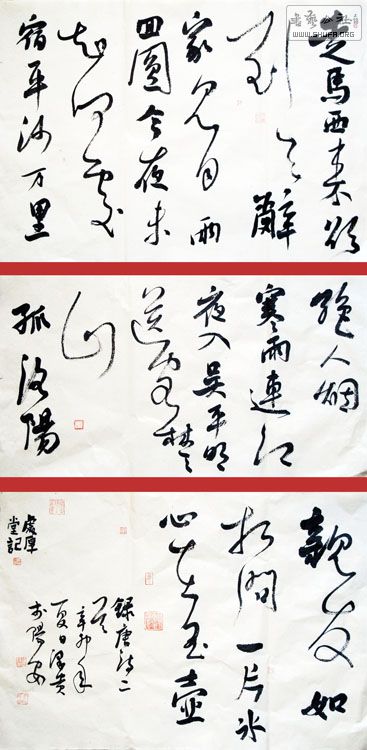 書藝公社
WWW.SHUFA.ORG
走馬西来欲
到天辭
家见月兩
回圓今夜未
知何處
宿平沙万里
絶人烟
寒雨連江
夜入吴平明
送客楚
山
孤洛陽
親友如
相問一片冰
心在玉壺
録唐詩二
首辛卯年
夏日
堂記